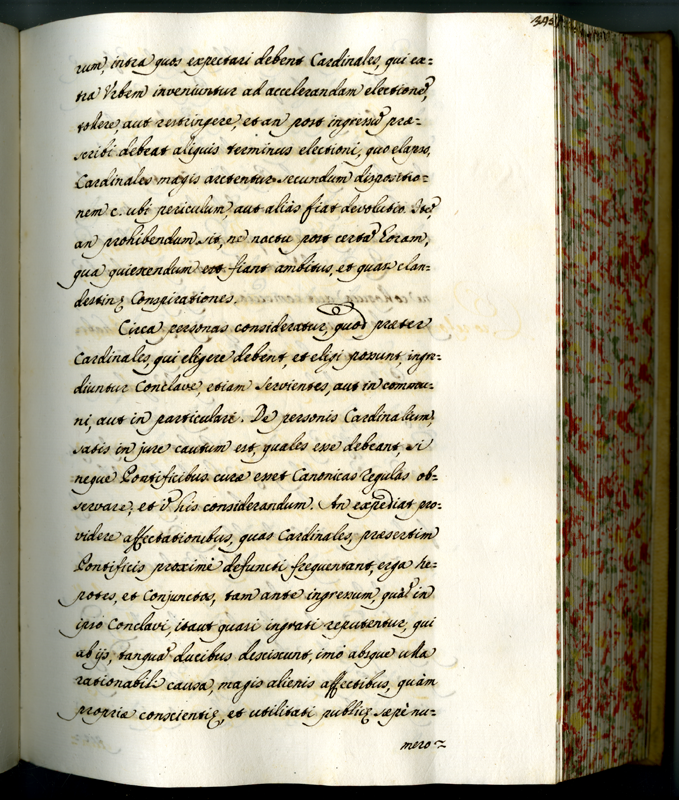 395
rum, intra quos expectari debent Cardinales, qui ex=
tra Vrbem inveniuntur ad accelerandam electione᷃,
tollere, aut restringere, et an post ingressu᷃ præ=
scribi debeat aliquis terminus electioni, quo elapso,
Cardinales magis arctentur secundum dispositio=
nem c. ubi periculum, aut alias fiat devolutio. Ite᷃
an prohibendum sit, ne noctu post certa᷃ horam,
qua quiescendum est fiant ambitus, et quasi clan=
destinę Conspirationes.
Circa personas consideratur, quod præter
Cardinales, qui eligere debent, et eligi possunt, ingre=
diuntur Conclave, etiam servientes, aut in commu=
ni, aut in particulari. De personis Cardinalium,
satis in jure cautum est, quales esse debeant, si
neque Pontificibus curæ esset Canonicas regulas ob=
servare, et i᷃ his considerandum. An expediat pro=
videre affectationibus, quas Cardinales, præsertim
Pontificis proximè defuncti frequentant, erga ne=
potes, et Conjunctos, tam ante ingressum, qua᷃ in
ipso Conclavi, itaut quasi ingrati reputentur, qui
ab ijs, tanqua᷃ ducibus desciscunt, imò absque ulla
rationabili causa, magis alienis affectibus, quàm
propriæ conscientię, et utilitati publicę sæpè nu=
mero=